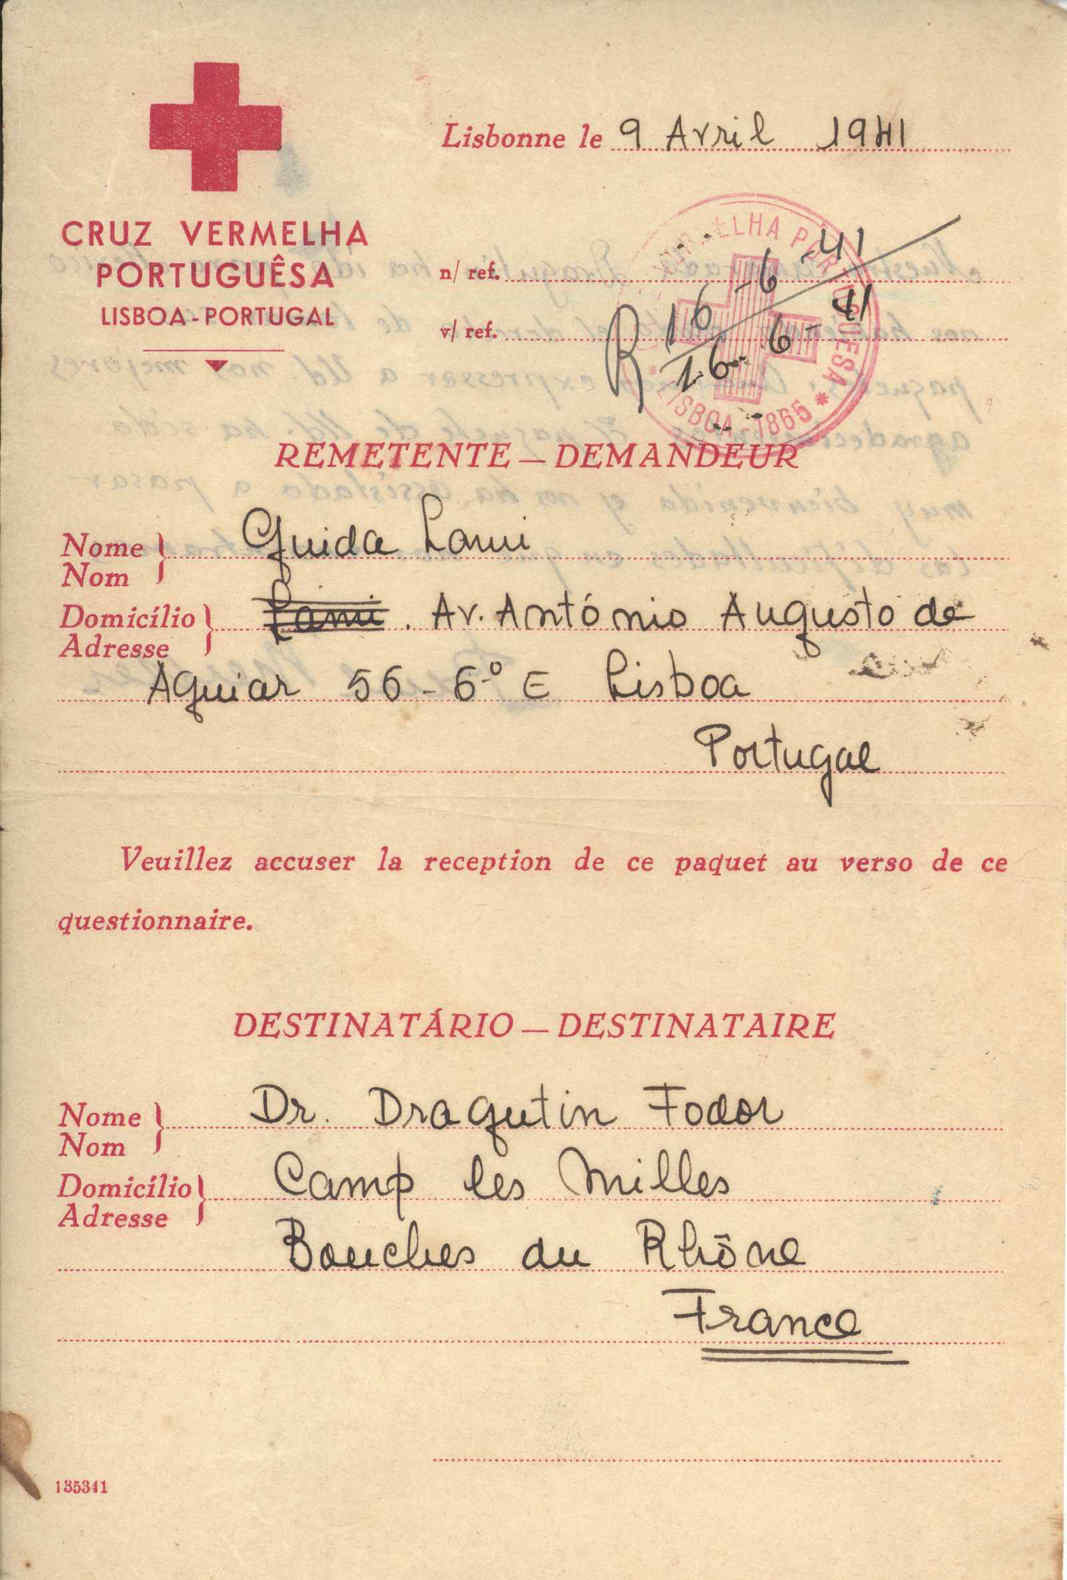 Lisbonne le 9 Avril 1941
CRUZ VERMELHA
PORTUGUÊSA
LISBOA-PORTUGAL
n/ ref.
v/ ref.
R 16-6-41
16-6-41
LISBOA-1865
REMETENTE — DEMANDEUR
Nome
Nom
Guida Lami
Domicílio
Adresse
Lami. Av. António Augusto de
Aguiar 56-6º E Lisboa
Portugal
Veuillez accuser la reception de ce paquet au verso de ce
questionnaire.
DESTINATÁRIO — DESTINATAIRE
Nome
Nom
Dr. Dragutin Fodor
Domicílio
Adresse
Camp les Milles
Bouches du Rhône
France
135341